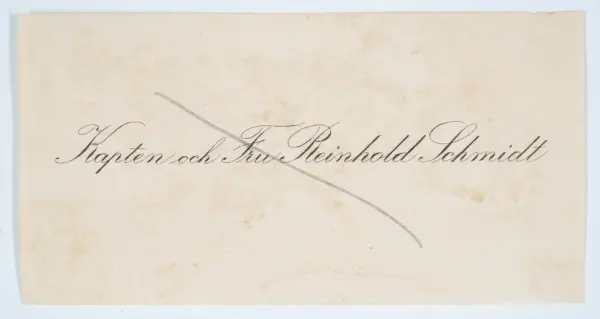 Kapten och Fru Reinhold Schmidt